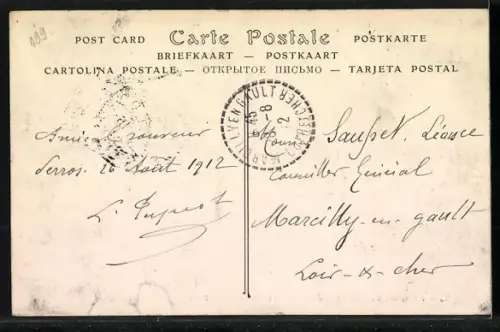 189
POST CARD Carte Postale POSTKARTE
BRIEFKAART — POSTKAART
CARTOLINA POSTALE — ОТКРЫТОЕ ПИСЬМО — TARJETA POSTAL
MARCILLY EN GAULT LOIR-ET-CHER
8
12
Amical souvenir
Perros 20 Août 1912
L. Dupont
Monsieur Sausset Léance
Conseiller Général
Marcilly-en-gault
Loir-&-cher